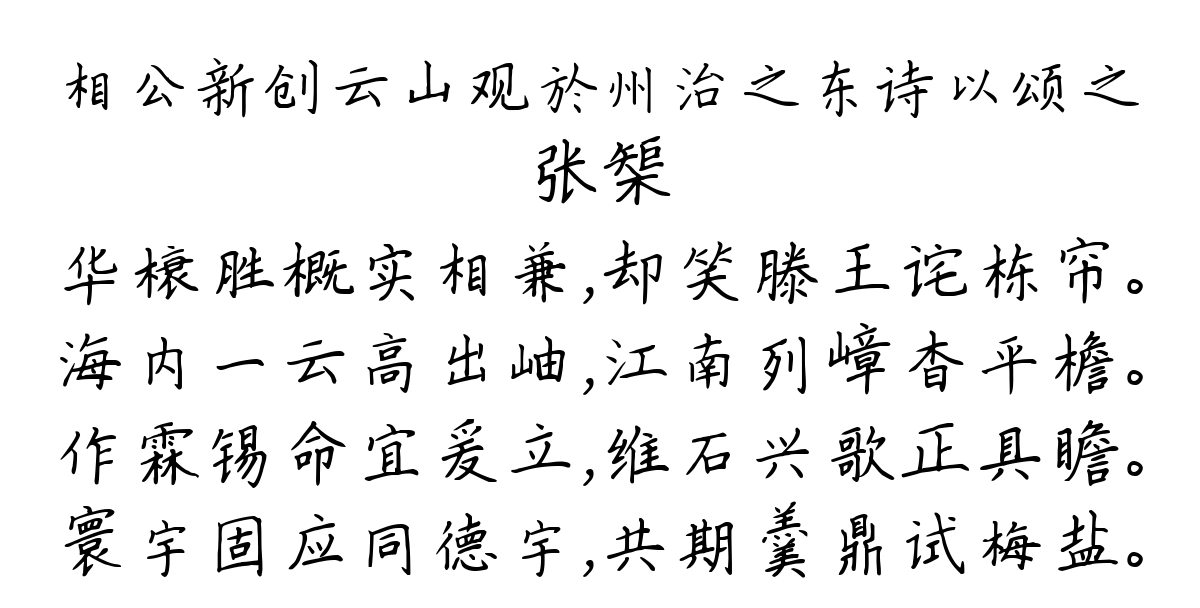 相公新创云山观於州治之东诗以颂之
张榘
华榱胜概实相兼,却笑滕王诧栋帘。
海内一云高出岫,江南列嶂杳平檐。
作霖锡命宜爰立,维石兴歌正具瞻。
寰宇固应同德宇,共期羹鼎试梅盐。